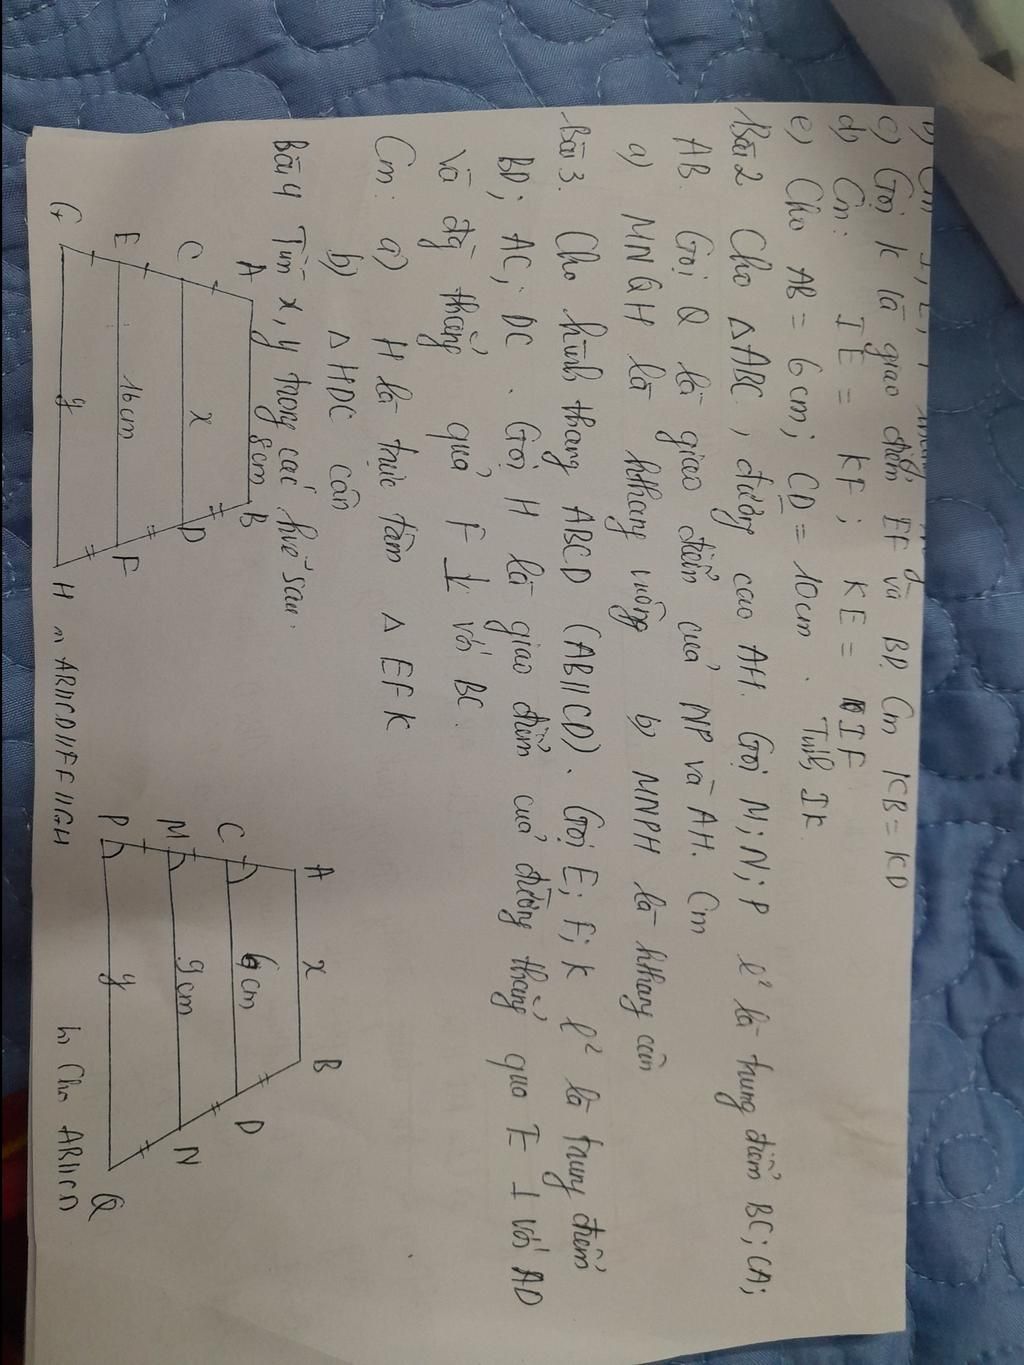 c) Gọi K là giao điểm EF và BD. Cm KB = KD
d) Cm: IE = KF; KE = IF
e) Cho AB = 6cm; CD = 10cm. Tính IK.
Bài 2 Cho △ABC, đường cao AH. Gọi M; N; P l² là trung điểm BC; CA;
AB. Gọi Q là giao điểm của NP và AH. Cm
a) MNQH là hthang vuông b) MNPH là hthang cân
Bài 3. Cho hình thang ABCD (AB//CD). Gọi E; F; K l² là trung điểm
BD; AC; DC. Gọi H là giao điểm của đường thẳng qua E ⊥ với AD
và đg thẳng qua F ⊥ với BC.
Cm: a) H là trực tâm △ EFK
b) △ HDC cân
Bài 4 Tìm x, y trong các hvẽ sau.
A 8cm B
C x D
E 16cm F
G y H
AB//CD//EF//GH
A x B
C 6cm D
M 9cm N
P y Q
b) Cho AB//CD